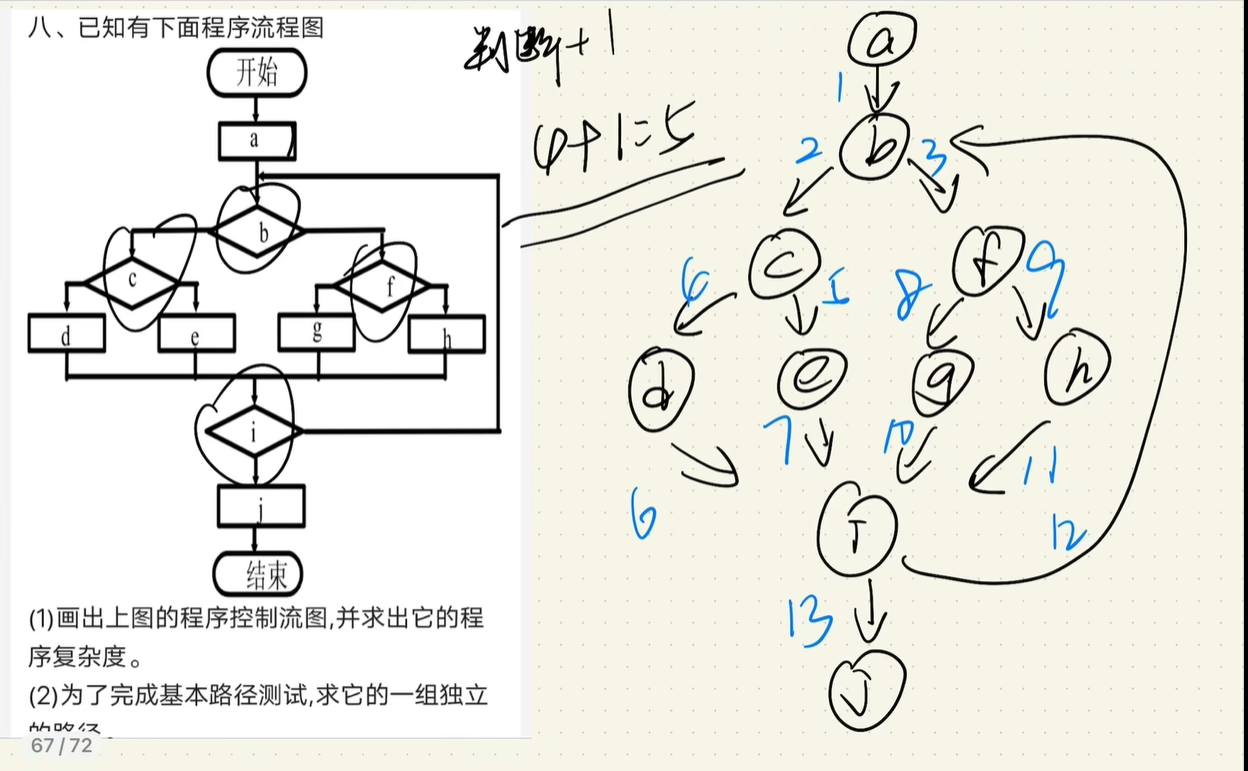 八、已知有下面程序流程图
开始
a
b
c
f
d
e
g
h
i
j
结束
(1)画出上图的程序控制流图,并求出它的程
序复杂度。
(2)为了完成基本路径测试,求它的一组独立
的路径。
67 / 72
判断+1
4+1=5
a
1
2 b 3
c f
4 5 8 9
d e g h
7 10 11
6 12
i
13
j